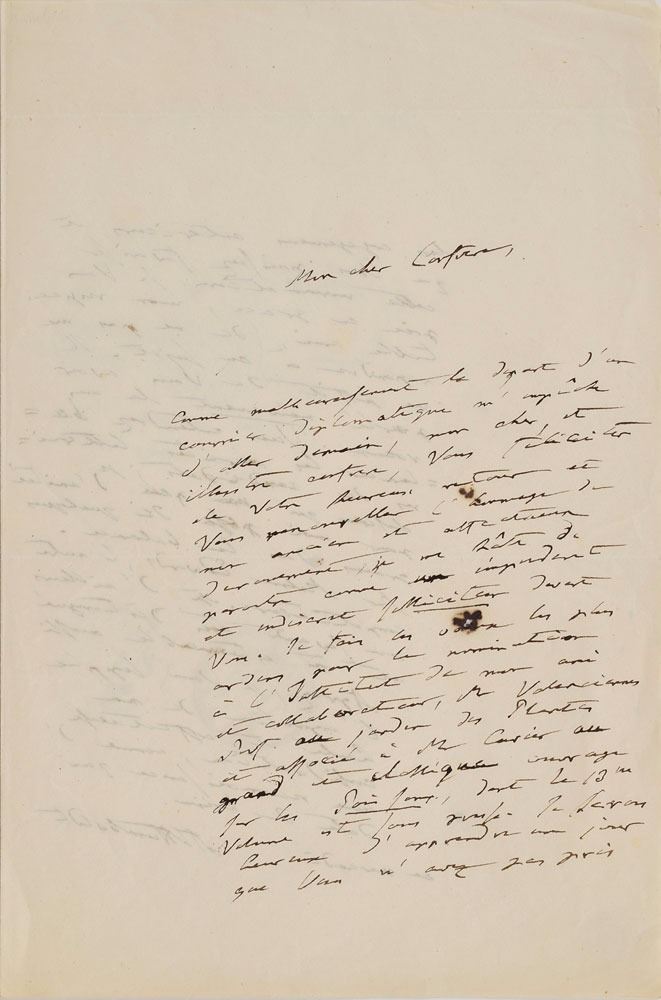 Mon cher Confrere,
Comme malheureusement le depart d'un
courrier diplomatique m'empêche
d'aller demain, mon cher et
illustre confrere, Vous féliciter
de Votre heureux retour et
Vous renouveller l'hommage de
mon ancien et affectueux
devouement, je me hâte de
paroitre comme imprudent
et indiscret solliciteur devant
Vous. Je fais les voeux les plus
ardens pour la nomination
à l'Institut de mon ami
et collaborateur, Mr Valenciennes
Prof. au jardin des Plantes
et associé à Mr Cuvier au
grand et classique ouvrage
sur les Poissons, dont le 13me
Volume est sous presse. Je serois
heureux d'apprendre un jour
que Vous n'avez pas pris